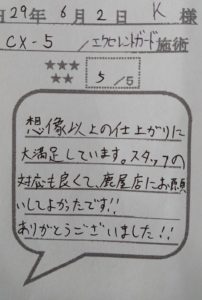 29年 6月 2日 K 様
CX-5 /エクセレントガード施術
★★★
★★
5 /5
想像以上の仕上がりに
大満足しています。スタッフの
対応も良くて、鹿屋店にお願
いしてよかったです!!
ありがとうございました!!